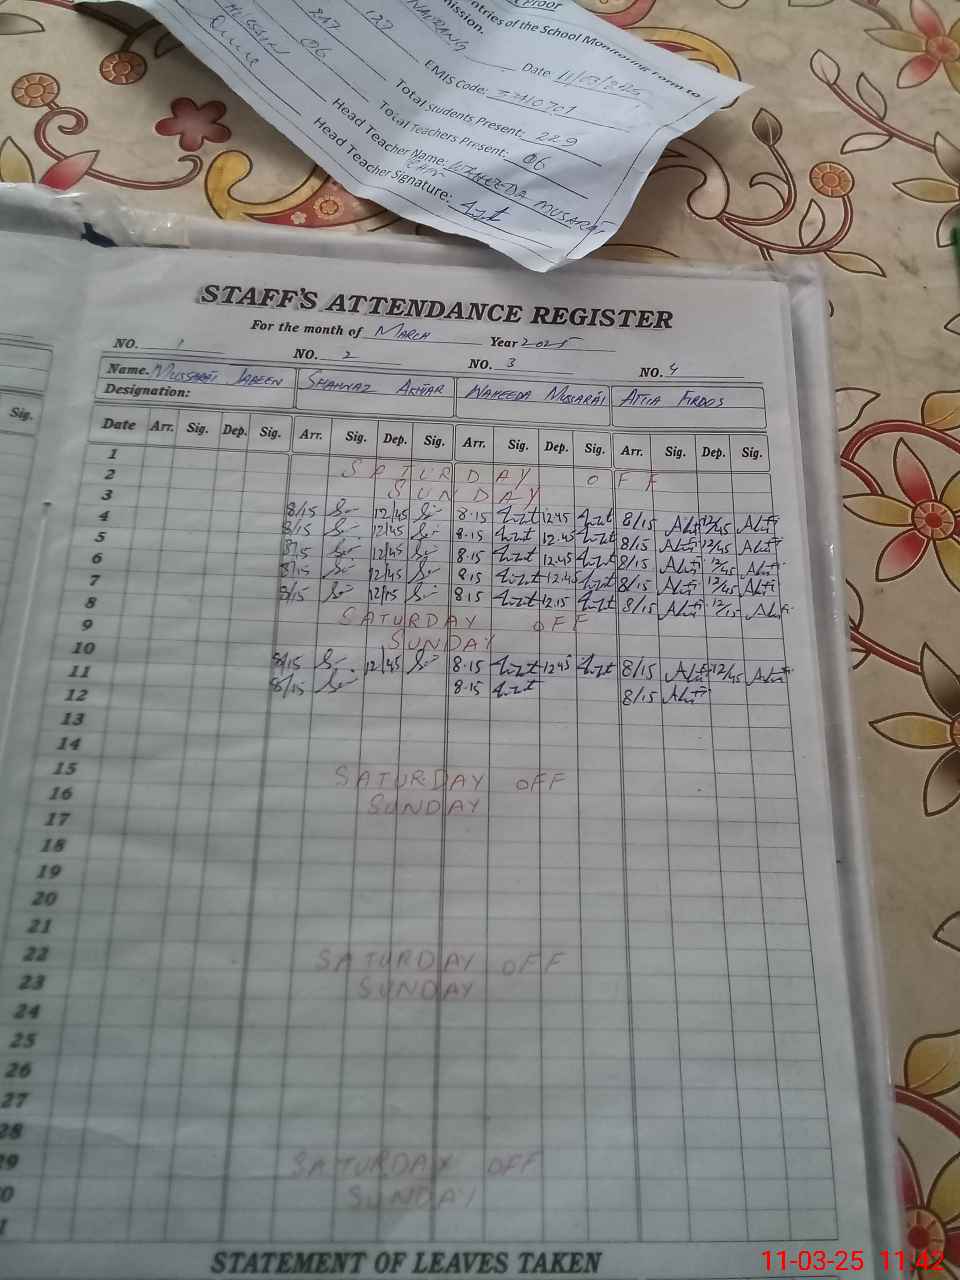 Proof
ntries of the School Monitoring Form to
mission.
Date: 11/03/2025
EMIS Code:
127
Total Students Present: 229
217
Total Teachers Present: 06
06
Head Teacher Name: WAHEEDA MUSARAT
Head Teacher Signature:
STAFF'S ATTENDANCE REGISTER
For the month of MARCH Year 2025
NO. 1 NO. 2 NO. 3 NO. 4
Name. MUSSARAT JABEEN SHAHNAZ AKHTAR WAHEEDA MUSARAT ATTIA FIRDOS
Designation:
Sig.
Date Arr. Sig. Dep. Sig. Arr. Sig. Dep. Sig. Arr. Sig. Dep. Sig. Arr. Sig. Dep. Sig.
1 SATURDAY OFF
2 SUNDAY
3 8/15 12/45 8.15 12.45 8/15 12/45
4 8/15 12/45 8.15 12.45 8/15 12/45
5 8/15 12/45 8.15 12.45 8/15 12/45
6 8/15 12/45 8.15 12.45 8/15 12/45
7 8/15 12/15 8.15 12.15 8/15 12/15
8 SATURDAY OFF
9 SUNDAY
10 8/15 12/45 8.15 12.45 8/15 12/45
11 8/15 8.15 8/15
12
13
14
15 SATURDAY OFF
16 SUNDAY
17
18
19
20
21
22 SATURDAY OFF
23 SUNDAY
24
25
26
27
28
29 SATURDAY OFF
0 SUNDAY
1
STATEMENT OF LEAVES TAKEN
11-03-25 11:42